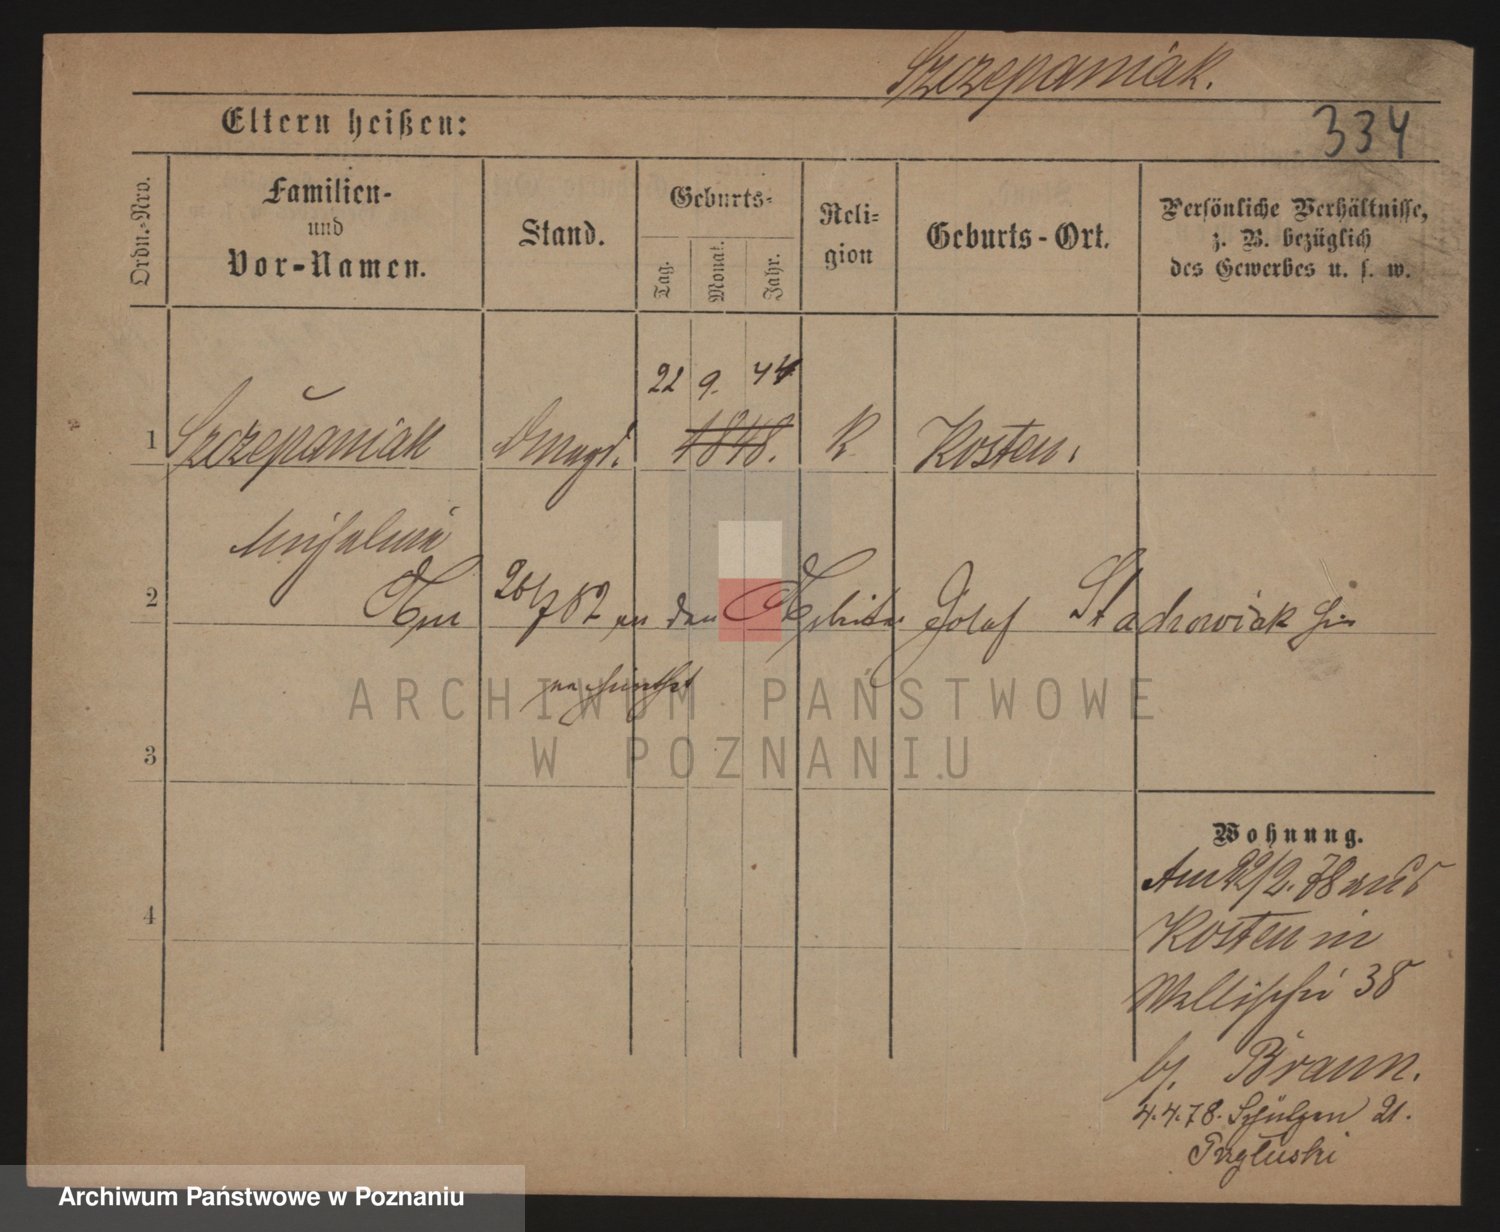 Szczepaniak.
334
Eltern heißen:
Ordn.-Nro.
Familien-
und
Vor-Namen.
Stand.
Geburts-
Tag.
Monat.
Jahr.
Reli-
gion
Geburts-Ort.
Persönliche Verhältnisse,
z. B. bezüglich
des Gewerbes u. s. w.
22 9. 44
1 Szczepaniak Dmagd. 1848. k Kosten.
Michalina
2 Am 20/7 82 an den Arbeiter Josef Stachowiak hier
verheirathet
ARCHIWUM PAŃSTWOWE
W POZNANIU
3
Wohnung.
4
Am 22/2. 78 aus
Kosten in
Wallischei 38
bj. Braun.
4.4.78. Schützen 21.
Archiwum Państwowe w Poznaniu